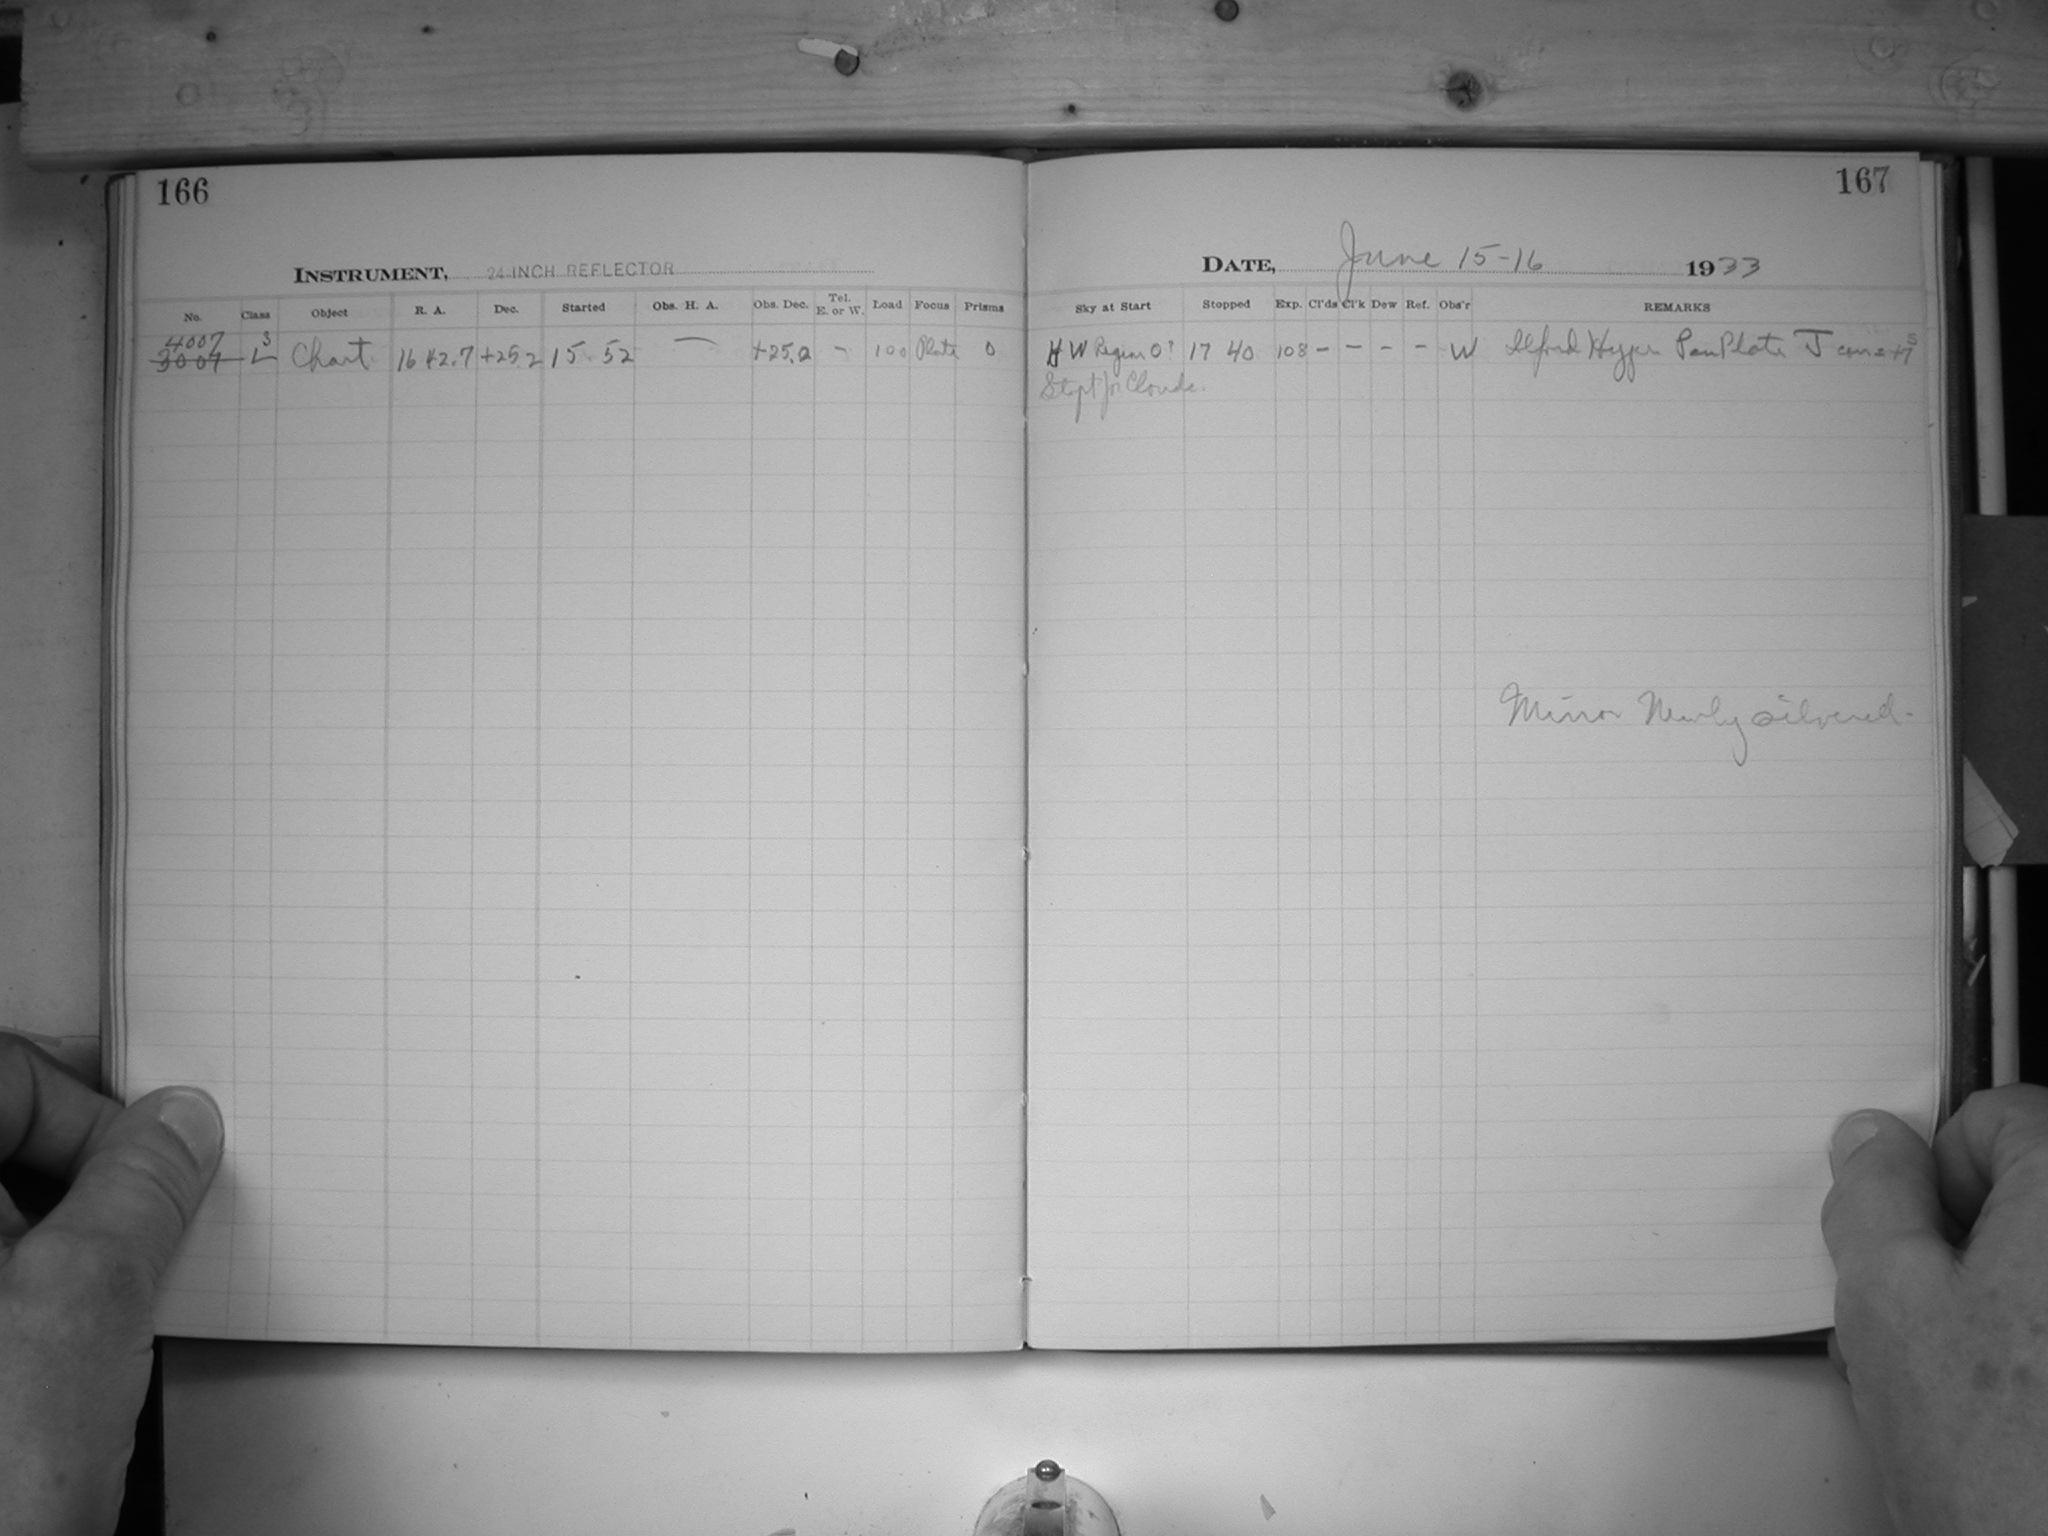 166
INSTRUMENT, 24-INCH REFLECTOR
No. Class Object R. A. Dec. Started Obs. H. A. Obs. Dec. Tel. E. or W. Load Focus Prisms
4007 S
3007 L Chart 16 42.7 +25.2 15 52 — +25.2 – 100 Plate 0
167
DATE, June 15-16 1933
Sky at Start Stopped Exp. Cl'ds Cl'k Dew Ref. Obs'r REMARKS
H W Region O? 17 40 108 – – – – W Ilford Hyper Pan Plate J
Stopt for Clouds.
Mirror Newly silvered.